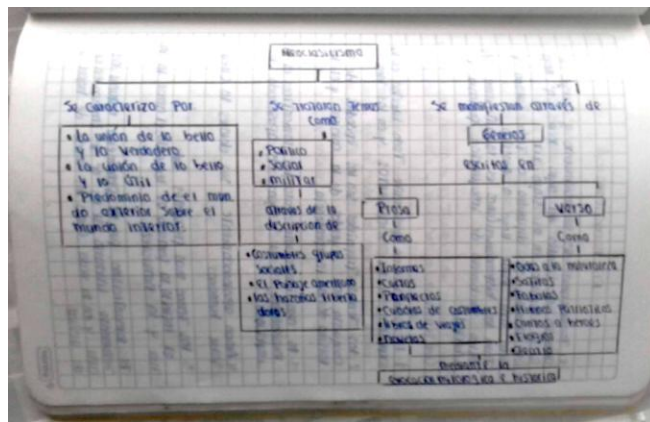 Neoclasicismo
Se caracterizo Por
• La unión de lo bello
y lo Verdadero.
• La unión de lo bello
y lo útil
• Predominio de el mun
do exterior sobre el
mundo interior.
Se trataron temas
como
• Político
• Social
• militar
através de la
descripción de
• Costumbres grupos
sociales
• El Paisaje americano
• las hazañas liberta
doras
Se manifiestan através de
Géneros
escritos en
Prosa
Como
• Informes
• Cartas
• Cuadros de costumbres
• libros de viajes
• novelas
Verso
Como
• Odas a la naturaleza
• Satiras
• Fabulas
• Himnos Patrioticos
• Cantos a heroes
• Elogios
• Teatro
mediante la
evocacion mitologica e historica